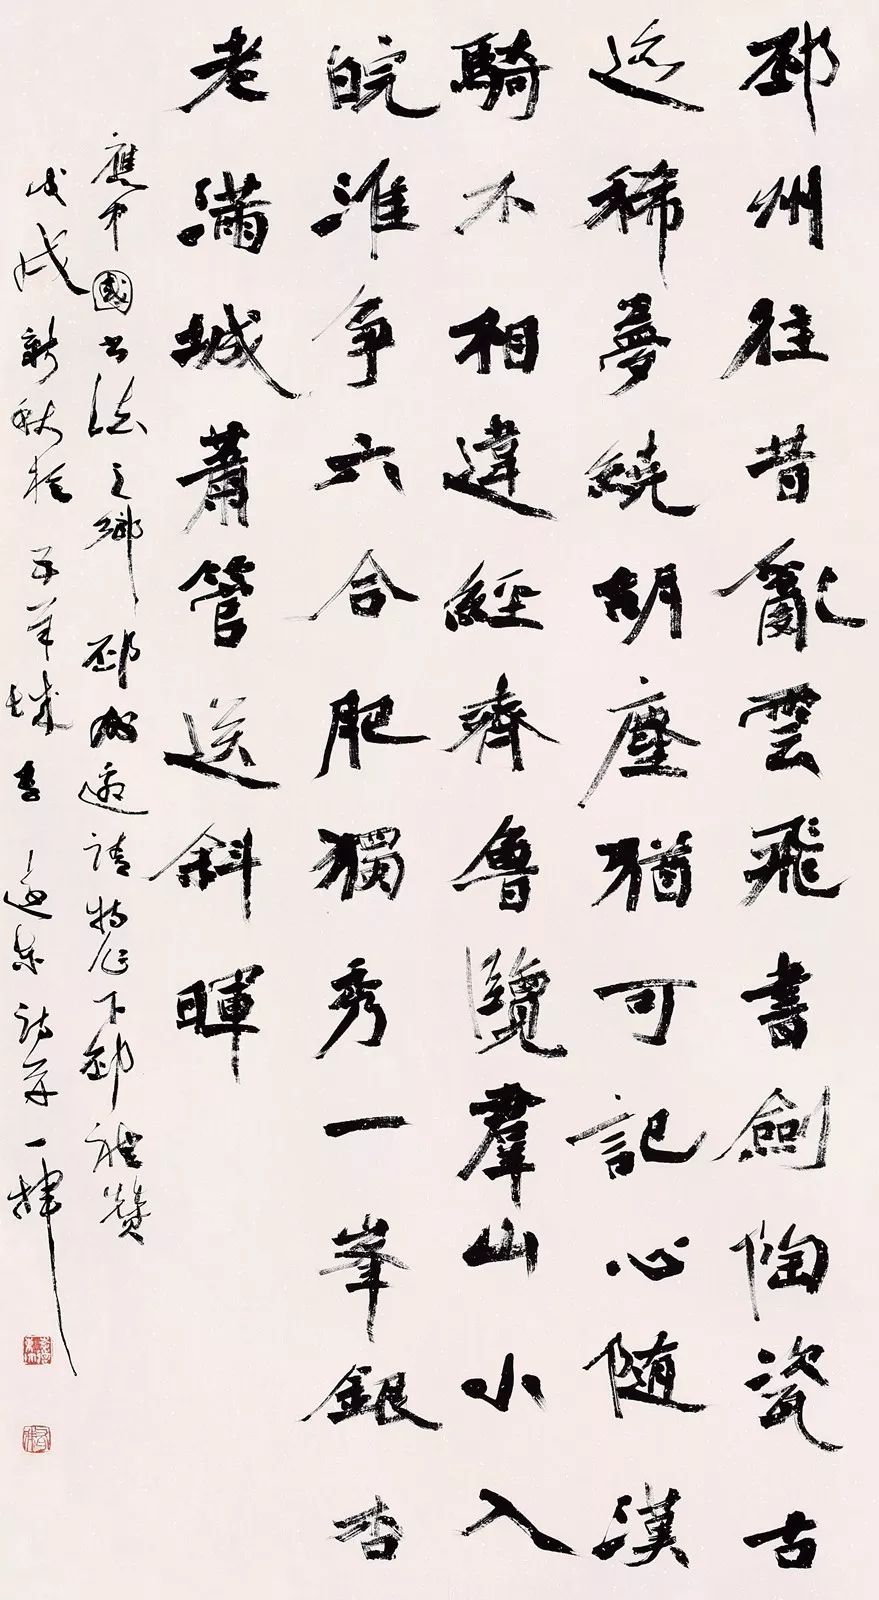 邳州往昔亂雲飛書劍陶瓷古
迹稀夢繞胡塵猶可記心随漢
騎不相違經齊魯覽羣山小入
皖淮争六合肥獨秀一峯銀杏
老滿城蕭管送斜暉
應中國書法之鄉邳州邀請特作下邳禮贊
戊戌新秋於五羊城李遠東詩并一揮